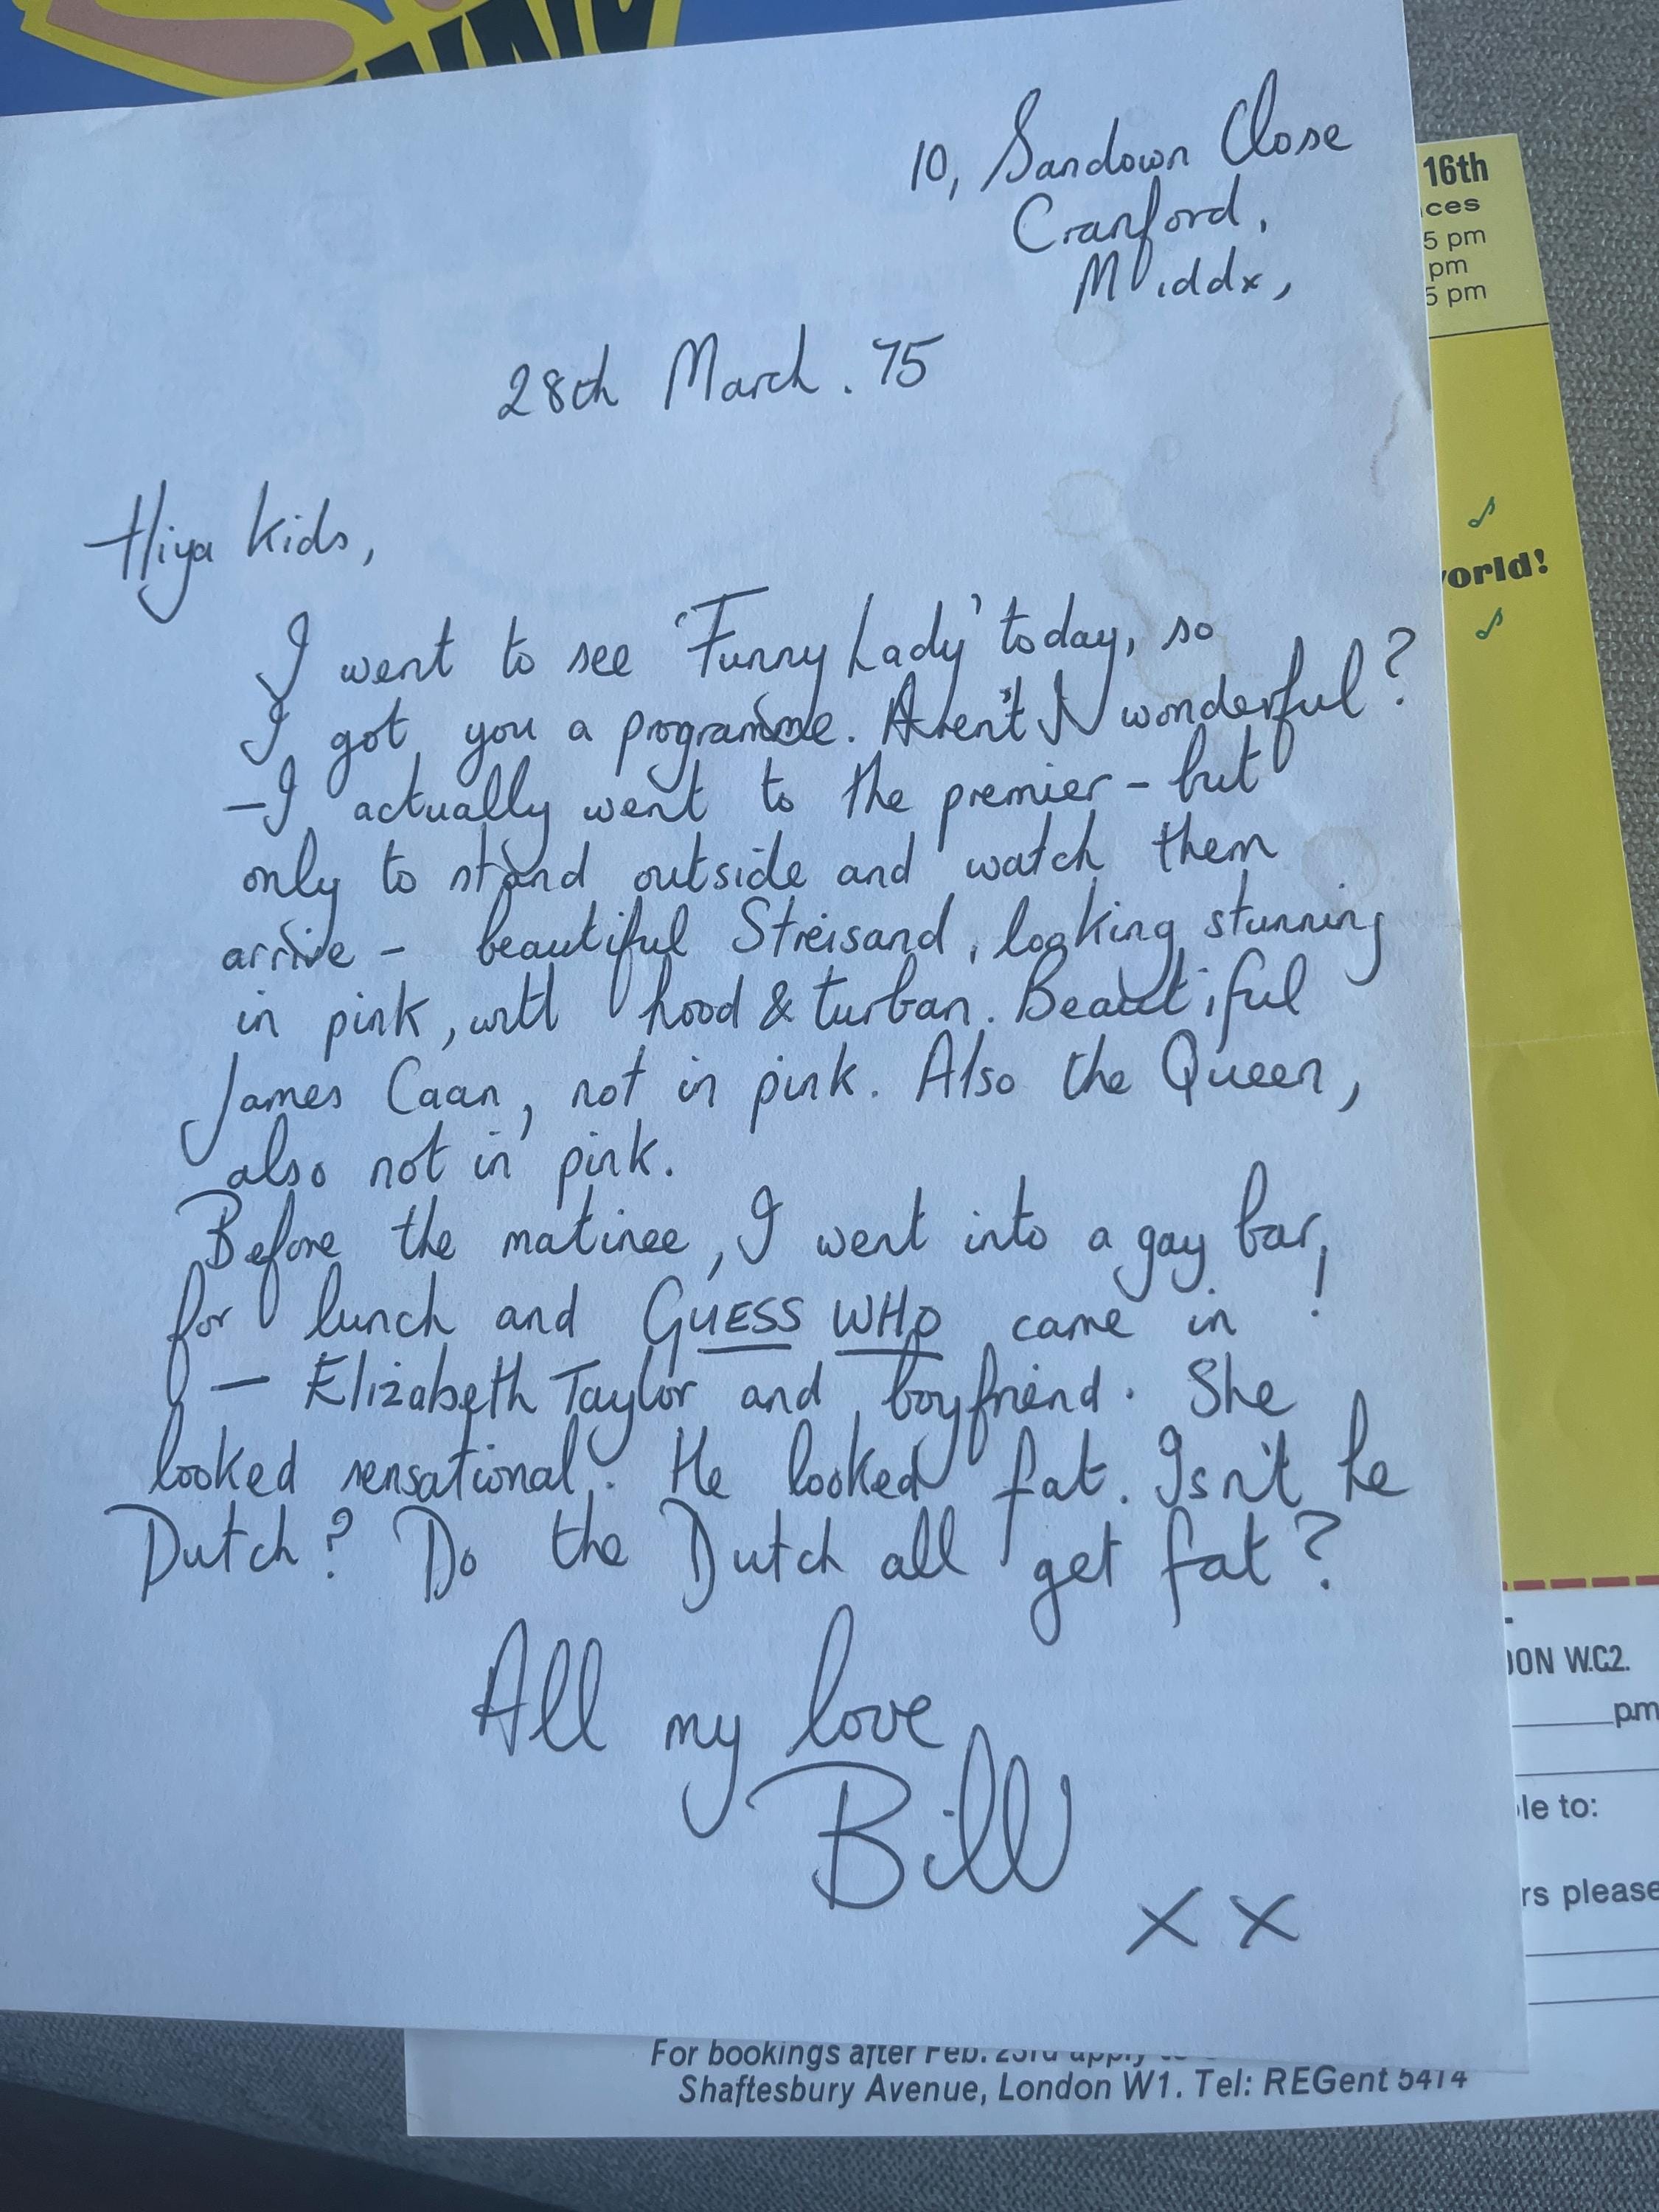 10, Sandown Close
Cranford,
Middx,
28th March. 75
Hiya Kids,
I went to see 'Funny Lady' today, so
I got you a programme. Aren't I wonderful?
– I actually went to the premier – but
only to stand outside and watch them
arrive – beautiful Streisand, looking stunning
in pink, with hood & turban. Beautiful
James Caan, not in pink. Also the Queen,
also not in pink.
Before the matinee, I went into a gay bar,
for lunch and GUESS WHO came in!
– Elizabeth Taylor and boyfriend. She
looked sensational. He looked fat. Isn't he
Dutch? Do the Dutch all get fat?
All my love
Bill
x x
16th
ces
5 pm
pm
5 pm
orld!
ON W.C.2.
pm
le to:
rs please
For bookings after Feb. 23rd apply to
Shaftesbury Avenue, London W1. Tel: REGent 5414